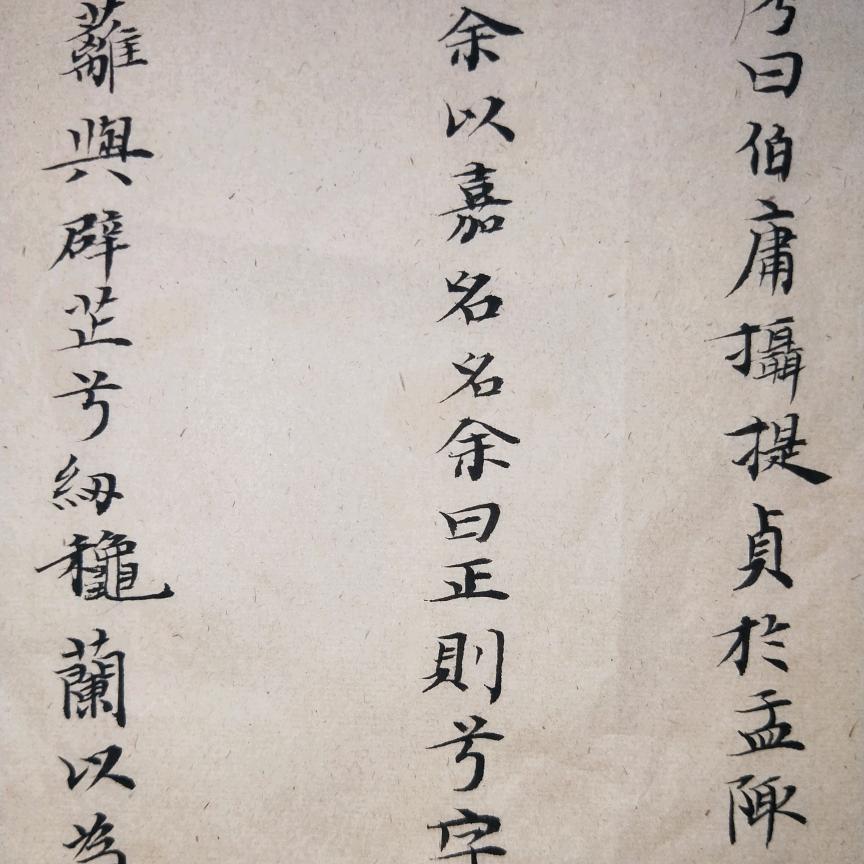 考曰伯庸攝提貞於孟陬
余以嘉名名余曰正則兮字
蘺與辟芷兮紉穐蘭以為